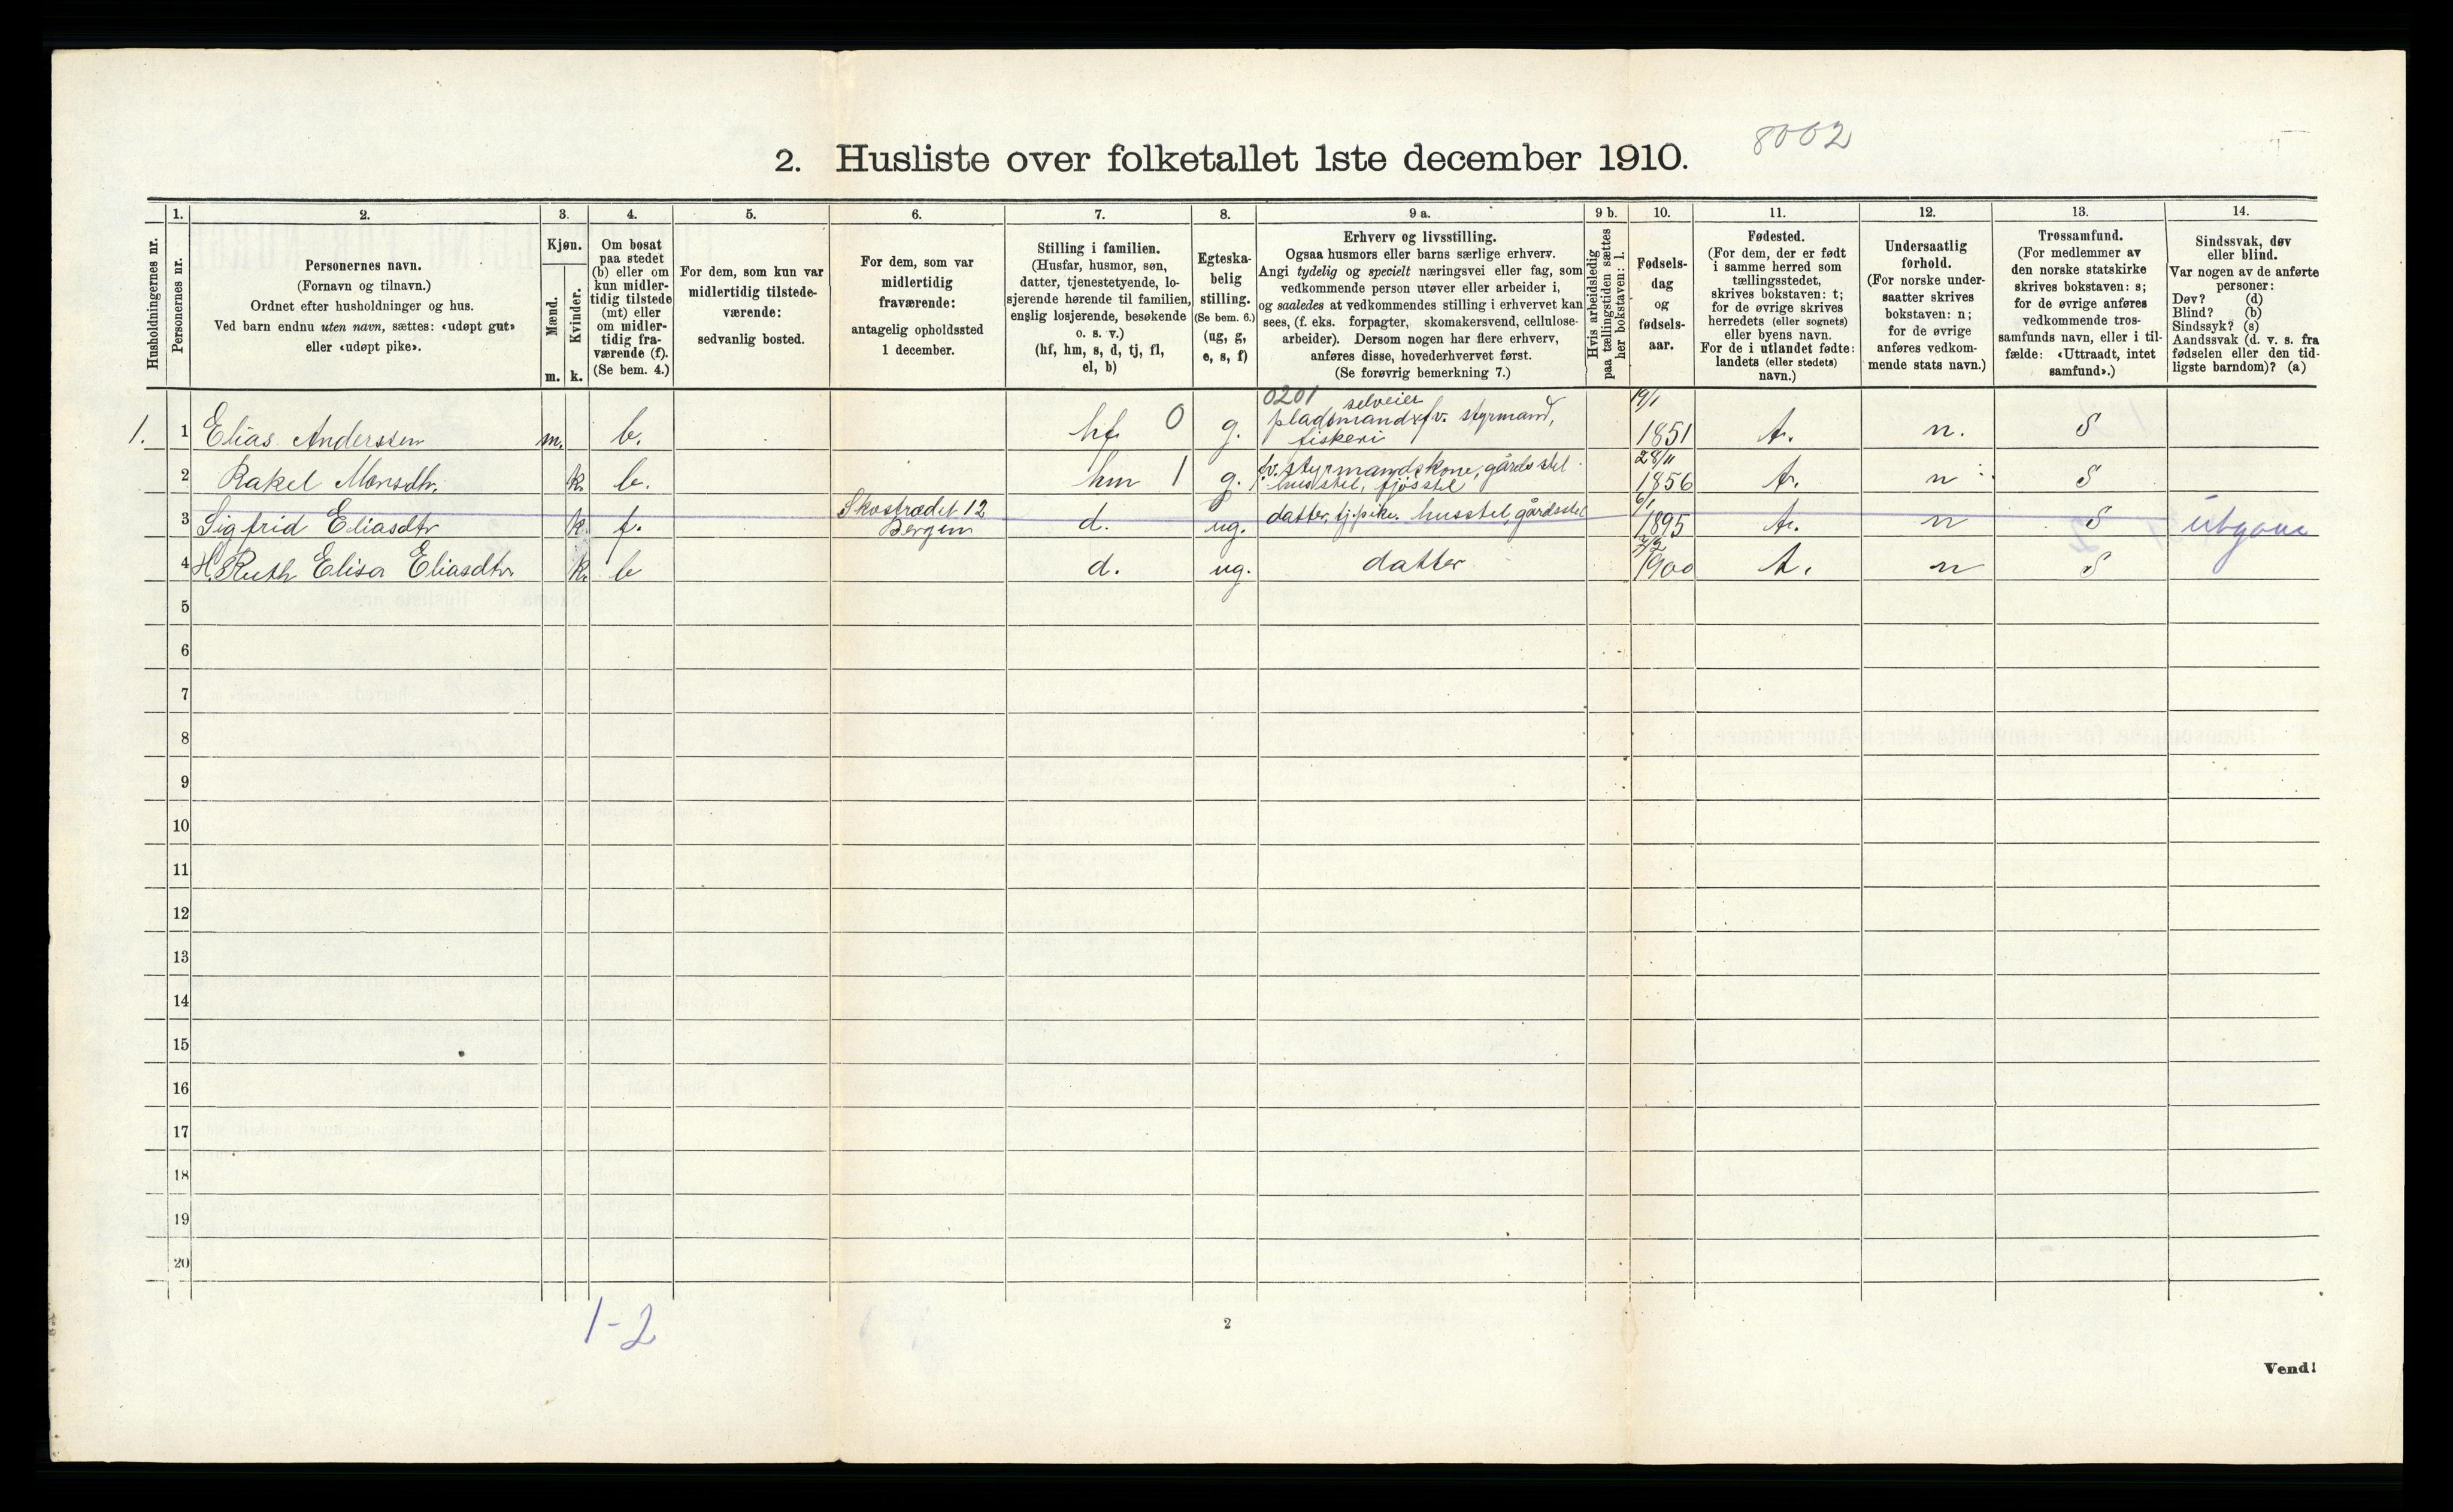 8002
2. Husliste over folketallet 1ste december 1910.
Husholdningernes nr.
1.
Personernes nr.
2.
Personernes navn.
(Fornavn og tilnavn.)
Ordnet efter husholdninger og hus.
Ved barn endnu uten navn, sættes: «udøpt gut»
eller «udøpt pike».
3.
Kjøn.
Mænd.
m.
Kvinder.
k.
4.
Om bosat
paa stedet
(b) eller om
kun midler-
tidig tilstede
(mt) eller
om midler-
tidig fra-
værende (f).
(Se bem. 4.)
5.
For dem, som kun var
midlertidig tilstede-
værende:
sedvanlig bosted.
6.
For dem, som var
midlertidig
fraværende:
antagelig opholdssted
1 december.
7.
Stilling i familien.
(Husfar, husmor, søn,
datter, tjenestetyende, lo-
sjerende hørende til familien,
enslig losjerende, besøkende
o. s. v.)
(hf, hm, s, d, tj, fl,
el, b)
8.
Egteska-
belig
stilling.
(Se bem. 6.)
(ug, g,
e, s, f)
9 a.
Erhverv og livsstilling.
Ogsaa husmors eller barns særlige erhverv.
Angi tydelig og specielt næringsvei eller fag, som
vedkommende person utøver eller arbeider i,
og saaledes at vedkommendes stilling i erhvervet kan
sees, (f. eks. forpagter, skomakersvend, cellulose-
arbeider). Dersom nogen har flere erhverv,
anføres disse, hovederhvervet først.
(Se forøvrig bemerkning 7.)
9 b.
Hvis arbeidsledig
paa tællingstiden sættes
her bokstaven: l.
10.
Fødsels-
dag
og
fødsels-
aar.
11.
Fødested.
(For dem, der er født
i samme herred som
tællingsstedet,
skrives bokstaven: t;
for de øvrige skrives
herredets (eller sognets)
eller byens navn.
For de i utlandet fødte:
landets (eller stedets)
navn.)
12.
Undersaatlig
forhold.
(For norske under-
saatter skrives
bokstaven: n;
for de øvrige
anføres vedkom-
mende stats navn.)
13.
Trossamfund.
(For medlemmer av
den norske statskirke
skrives bokstaven: s;
for de øvrige anføres
vedkommende tros-
samfunds navn, eller i til-
fælde: «Uttraadt, intet
samfund».)
14.
Sindssvak, døv
eller blind.
Var nogen av de anførte
personer:
Døv? (d)
Blind? (b)
Sindssyk? (s)
Aandssvak (d. v. s. fra
fødselen eller den tid-
ligste barndom)? (a)
0201 selveier 19/1
1. 1 Elias Anderssen m. b. hf 0 g. pladsmand fv. styrmand, fiskeri 1851 t. n. S
2 Rakel Monsdtr. k. b. hm 1 g. fv. styrmandskone, gårdsstel husstel, fjøsstel 28/11 1856 t. n S
3 Sigfrid Eliasdtr k. f. Skostrædet 12 Bergen d. ug. datter, tj.pike. husstel, gårdsstel 6/1 1895 t. n S Utgaar
4 H. Ruth Elisa Eliasdtr. k. b d. ug. datter 7/2 1900 t. n S
5
6
7
8
9
10
11
12
13
14
15
16
17
18
19
20
1-2
2
Vend!